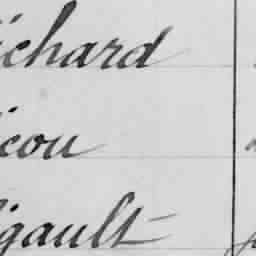 ichard
icou
igault